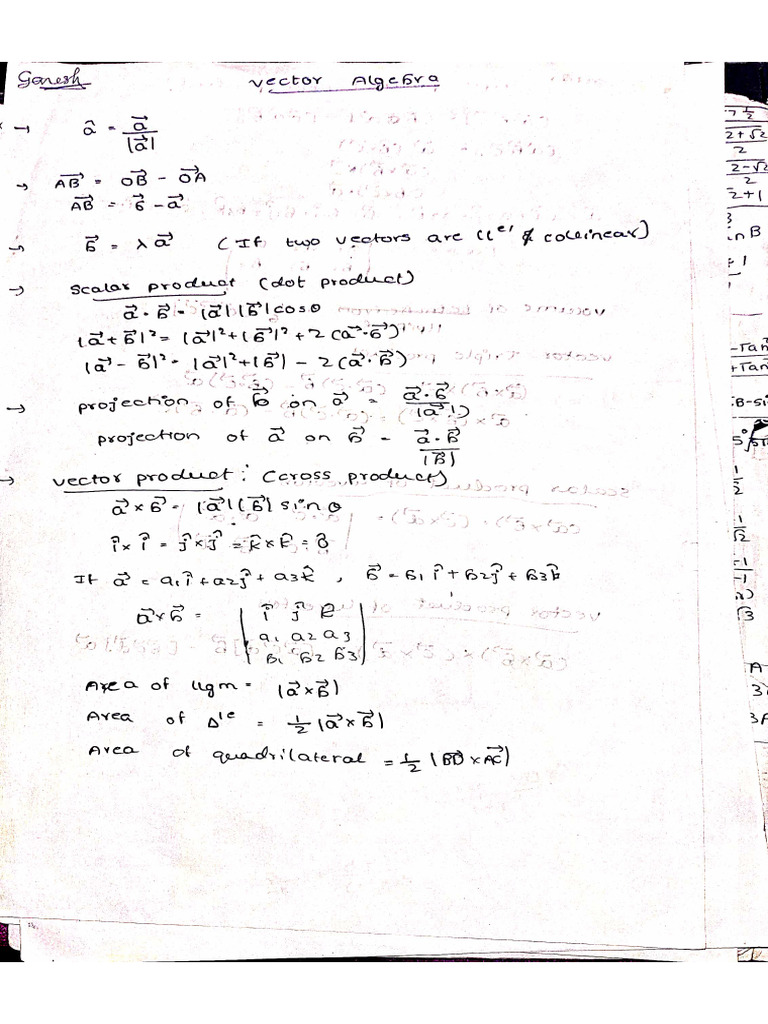 Ganesh
Vector Algebra
→ â = a⃗ / |a⃗|
→ AB⃗ = OB⃗ - OA⃗
AB⃗ = b⃗ - a⃗
→ b⃗ = λ a⃗ (If two vectors are ||el & collinear)
→ Scalar product (dot product)
a⃗ · b⃗ = |a⃗| |b⃗| cosθ
|a⃗ + b⃗|² = |a⃗|² + |b⃗|² + 2 (a⃗ · b⃗)
|a⃗ - b⃗|² = |a⃗|² + |b⃗| - 2 (a⃗ · b⃗)
→ projection of b⃗ on a⃗ = a⃗ · b⃗ / |a⃗|
projection of a⃗ on b⃗ = a⃗ · b⃗ / |b⃗|
→ vector product : (cross product)
a⃗ × b⃗ = |a⃗| |b⃗| sinθ
î × î = ĵ × ĵ = k̂ × k̂ = 0⃗
If a⃗ = a1 î + a2 ĵ + a3 k̂ , b⃗ = b1 î + b2 ĵ + b3 k̂
a⃗ × b⃗ = | î ĵ k̂ |
| a1 a2 a3 |
| b1 b2 b3 |
Area of llgm = |a⃗ × b⃗|
Area of Δle = 1/2 |a⃗ × b⃗|
Area of quadrilateral = 1/2 |BD⃗ × AC⃗|